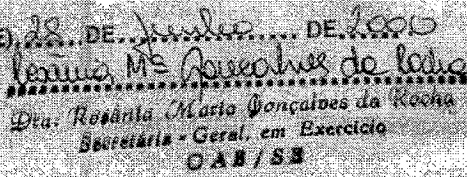 28 DE Junho DE 2000
Rosânia Mª Gonçalves da Rocha
Dra. Rosânia Maria Gonçalves da Rocha
Secretária - Geral, em Exercício
OAB / SE